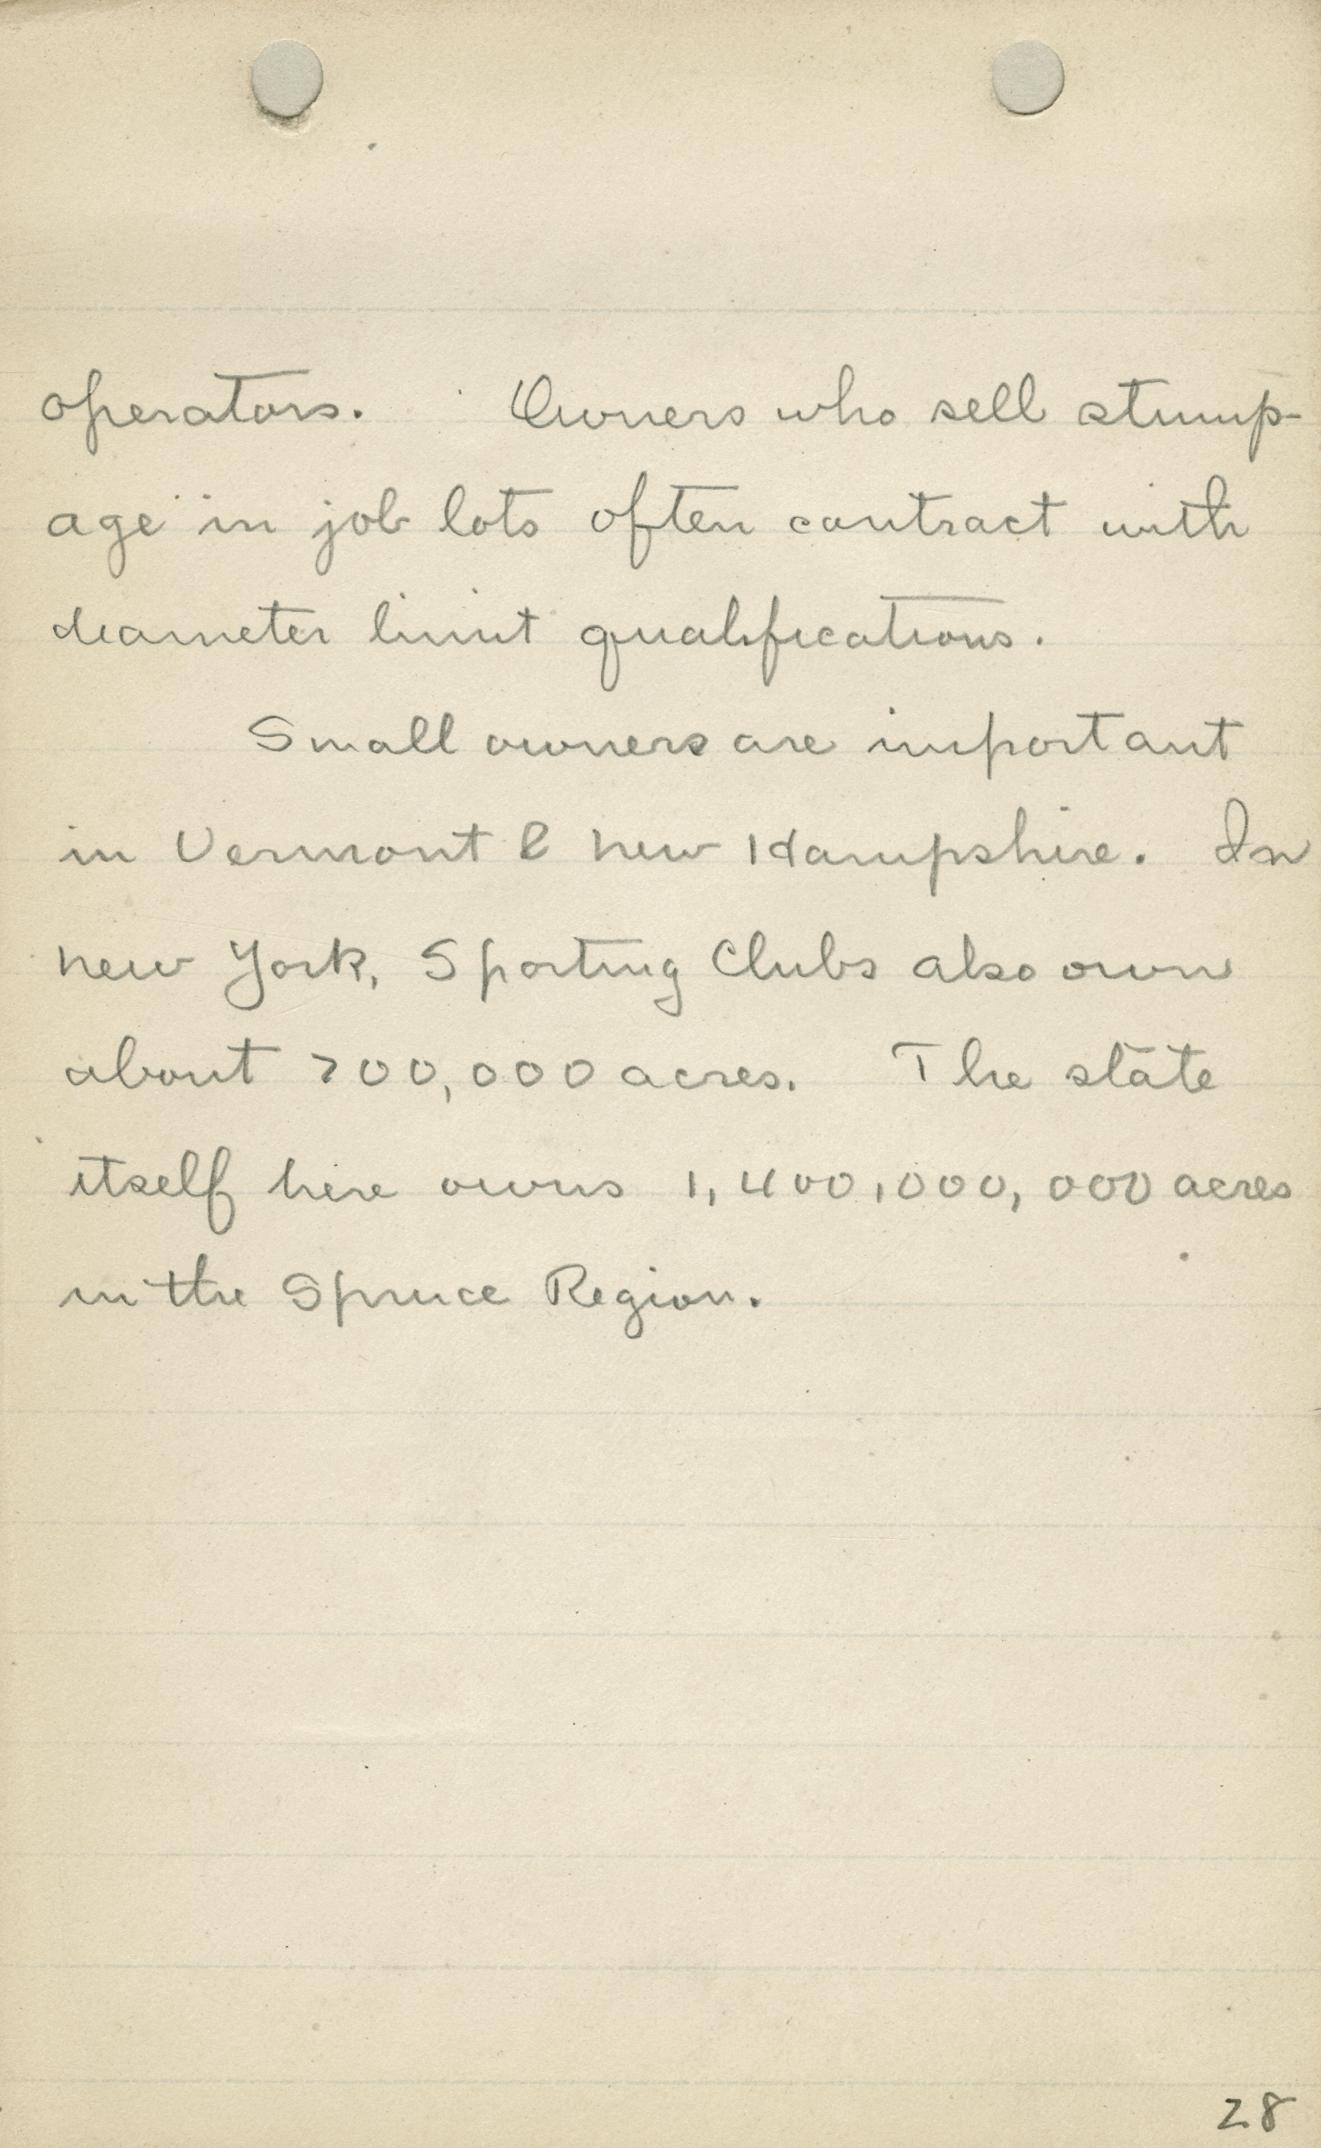 operators. Owners who sell stump-
age in job lots often contract with
diameter limit qualifications.
Small owners are important
in Vermont & New Hampshire. In
New York, Sporting Clubs also own
about 700,000 acres. The state
itself here owns 1,400,000,000 acres
in the Spruce Region.
28